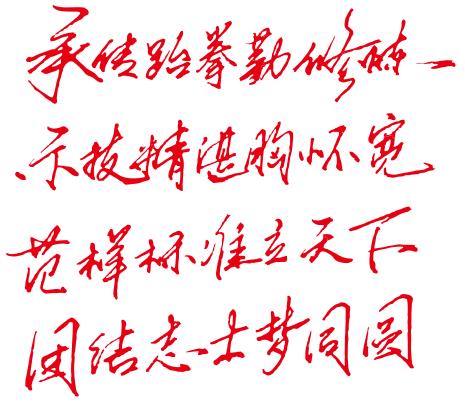 承传跆拳勤修炼一
示技精湛胸怀宽
范样标准立天下
团结志士梦同圆